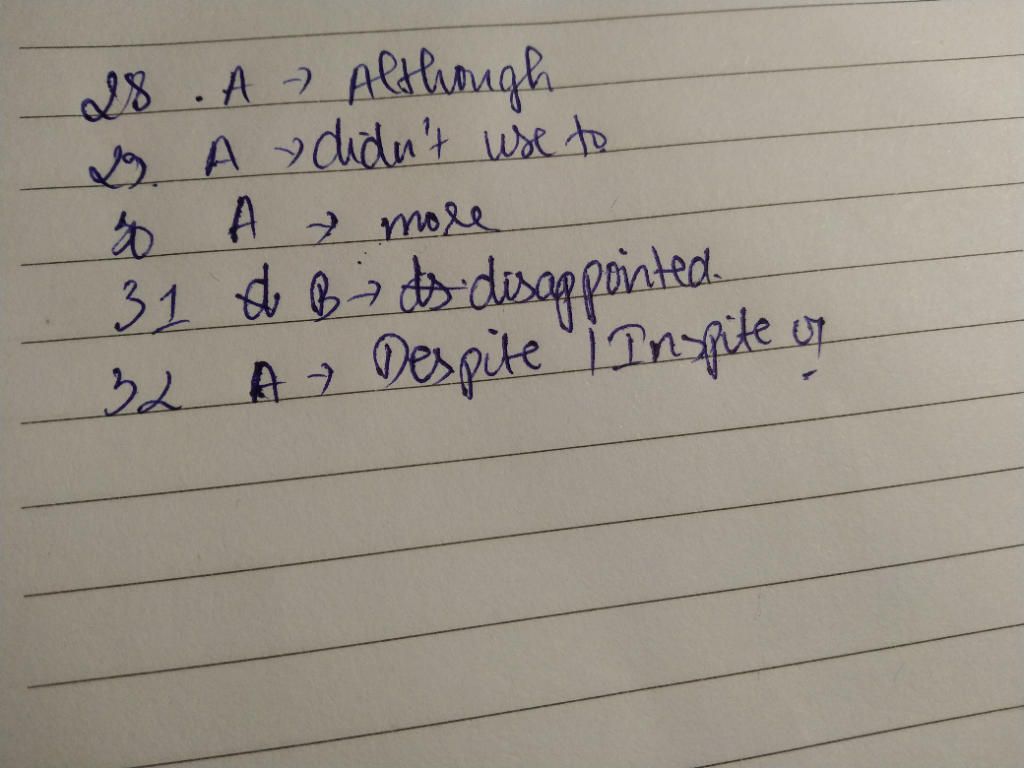 28 . A → Although
29. A → didn't use to
30 A → more
31 B → disappointed.
32 A → Despite / Inspite of